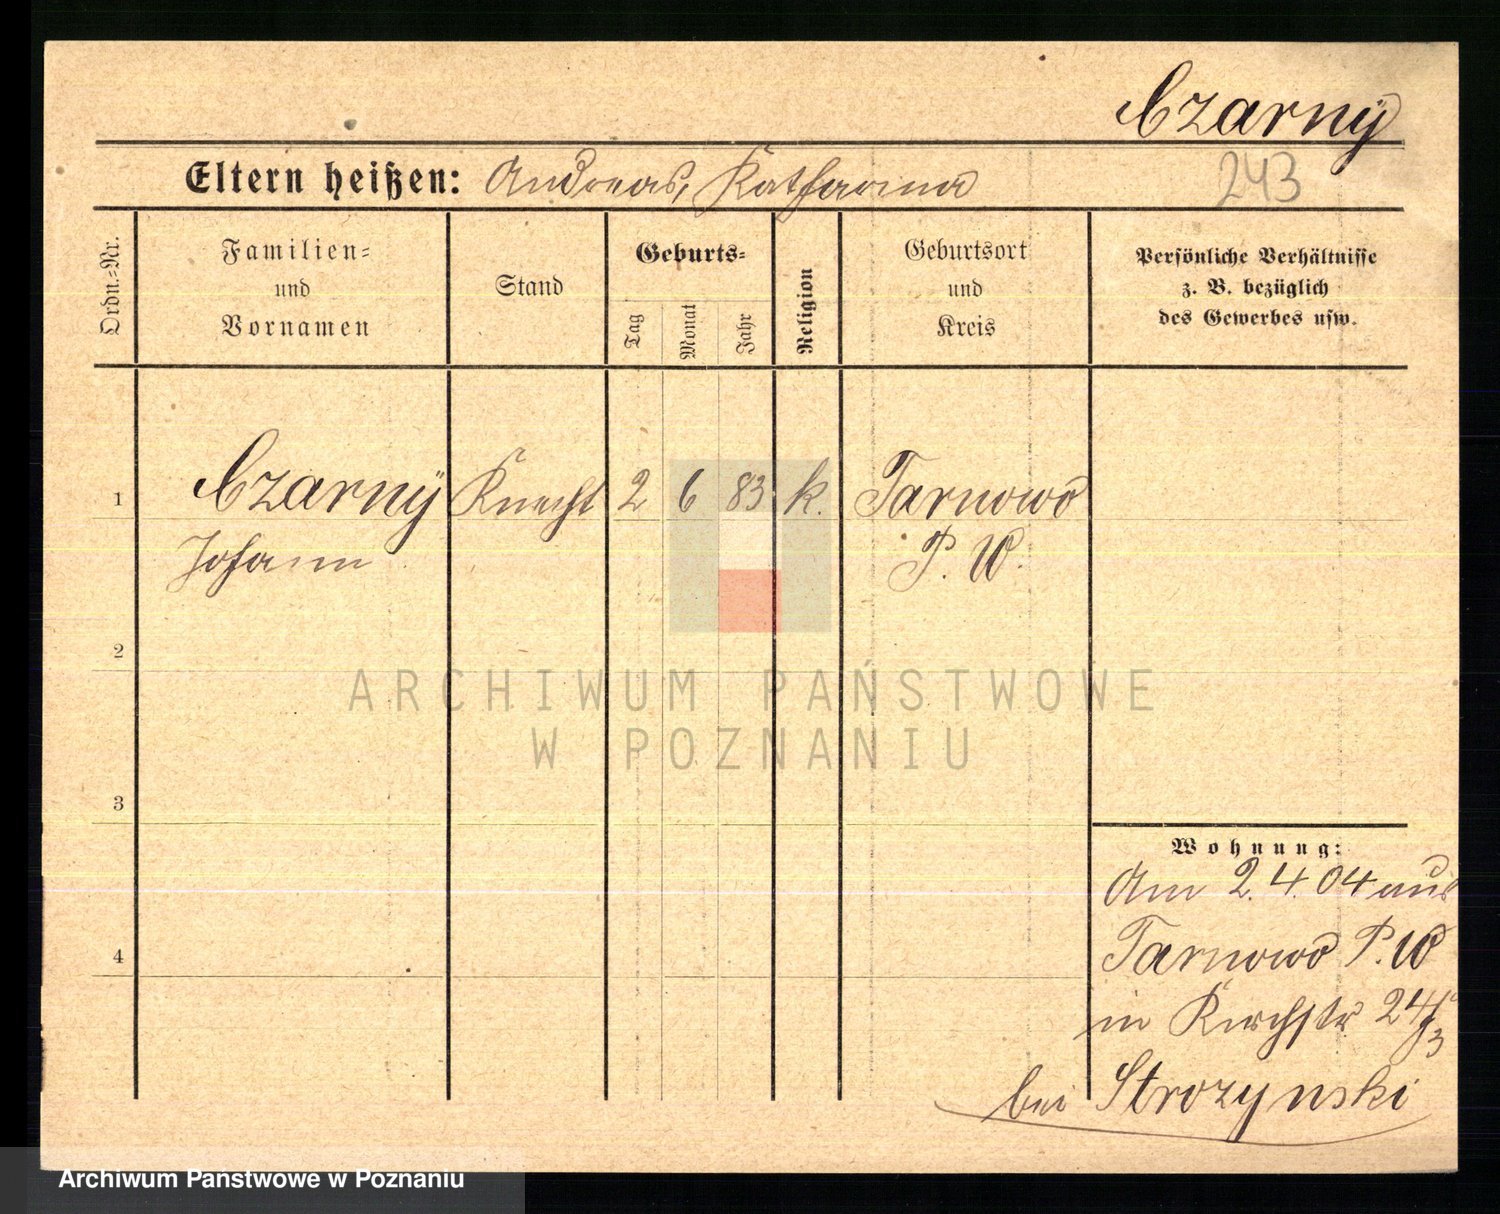 Czarny
Eltern heißen: Andreas, Katharina
243
Ordn.=Nr.
Familien=
und
Vornamen
Stand
Geburts=
Tag
Monat
Jahr
Religion
Geburtsort
und
Kreis
Persönliche Verhältnisse
z. B. bezüglich
des Gewerbes usw.
1 Czarny Knecht 2 6 83 k. Tarnowo
Johann P. W.
2
ARCHIWUM PAŃSTWOWE
W POZNANIU
3
Wohnung:
Am 2. 4. 04 aus
4 Tarnowo P. W
in Kirchstr 24/3
bei Strozynski
Archiwum Państwowe w Poznaniu